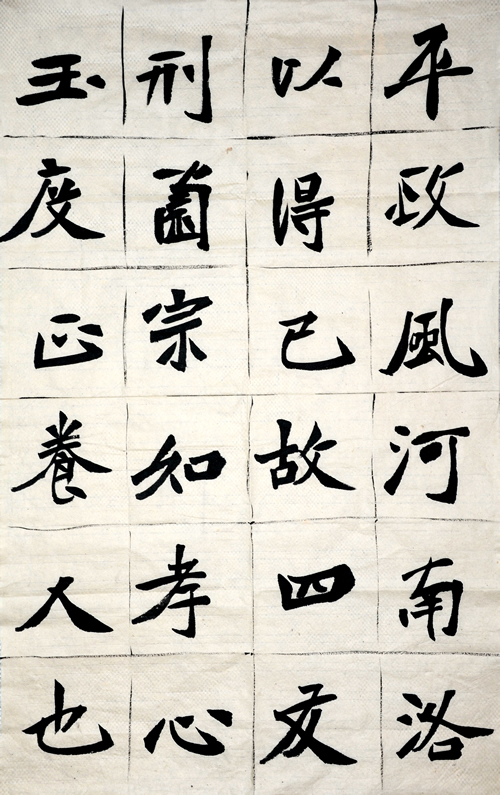 平政風河南洛
以得已故四友
刑菌宗知孝心
玉度正養人也